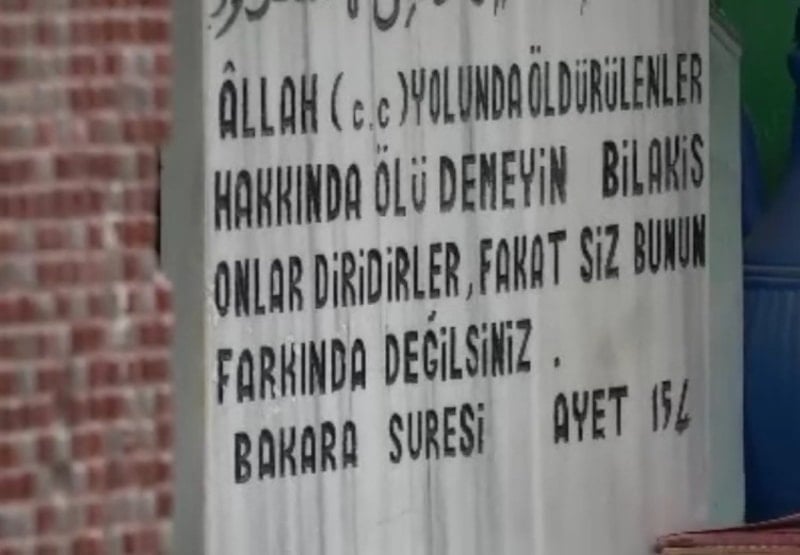 ÂLLAH (c.c) YOLUNDA ÖLDÜRÜLENLER
HAKKINDA ÖLÜ DEMEYİN BİLAKİS
ONLAR DİRİDİRLER, FAKAT SİZ BUNUN
FARKINDA DEĞİLSİNİZ .
BAKARA SURESİ AYET 154